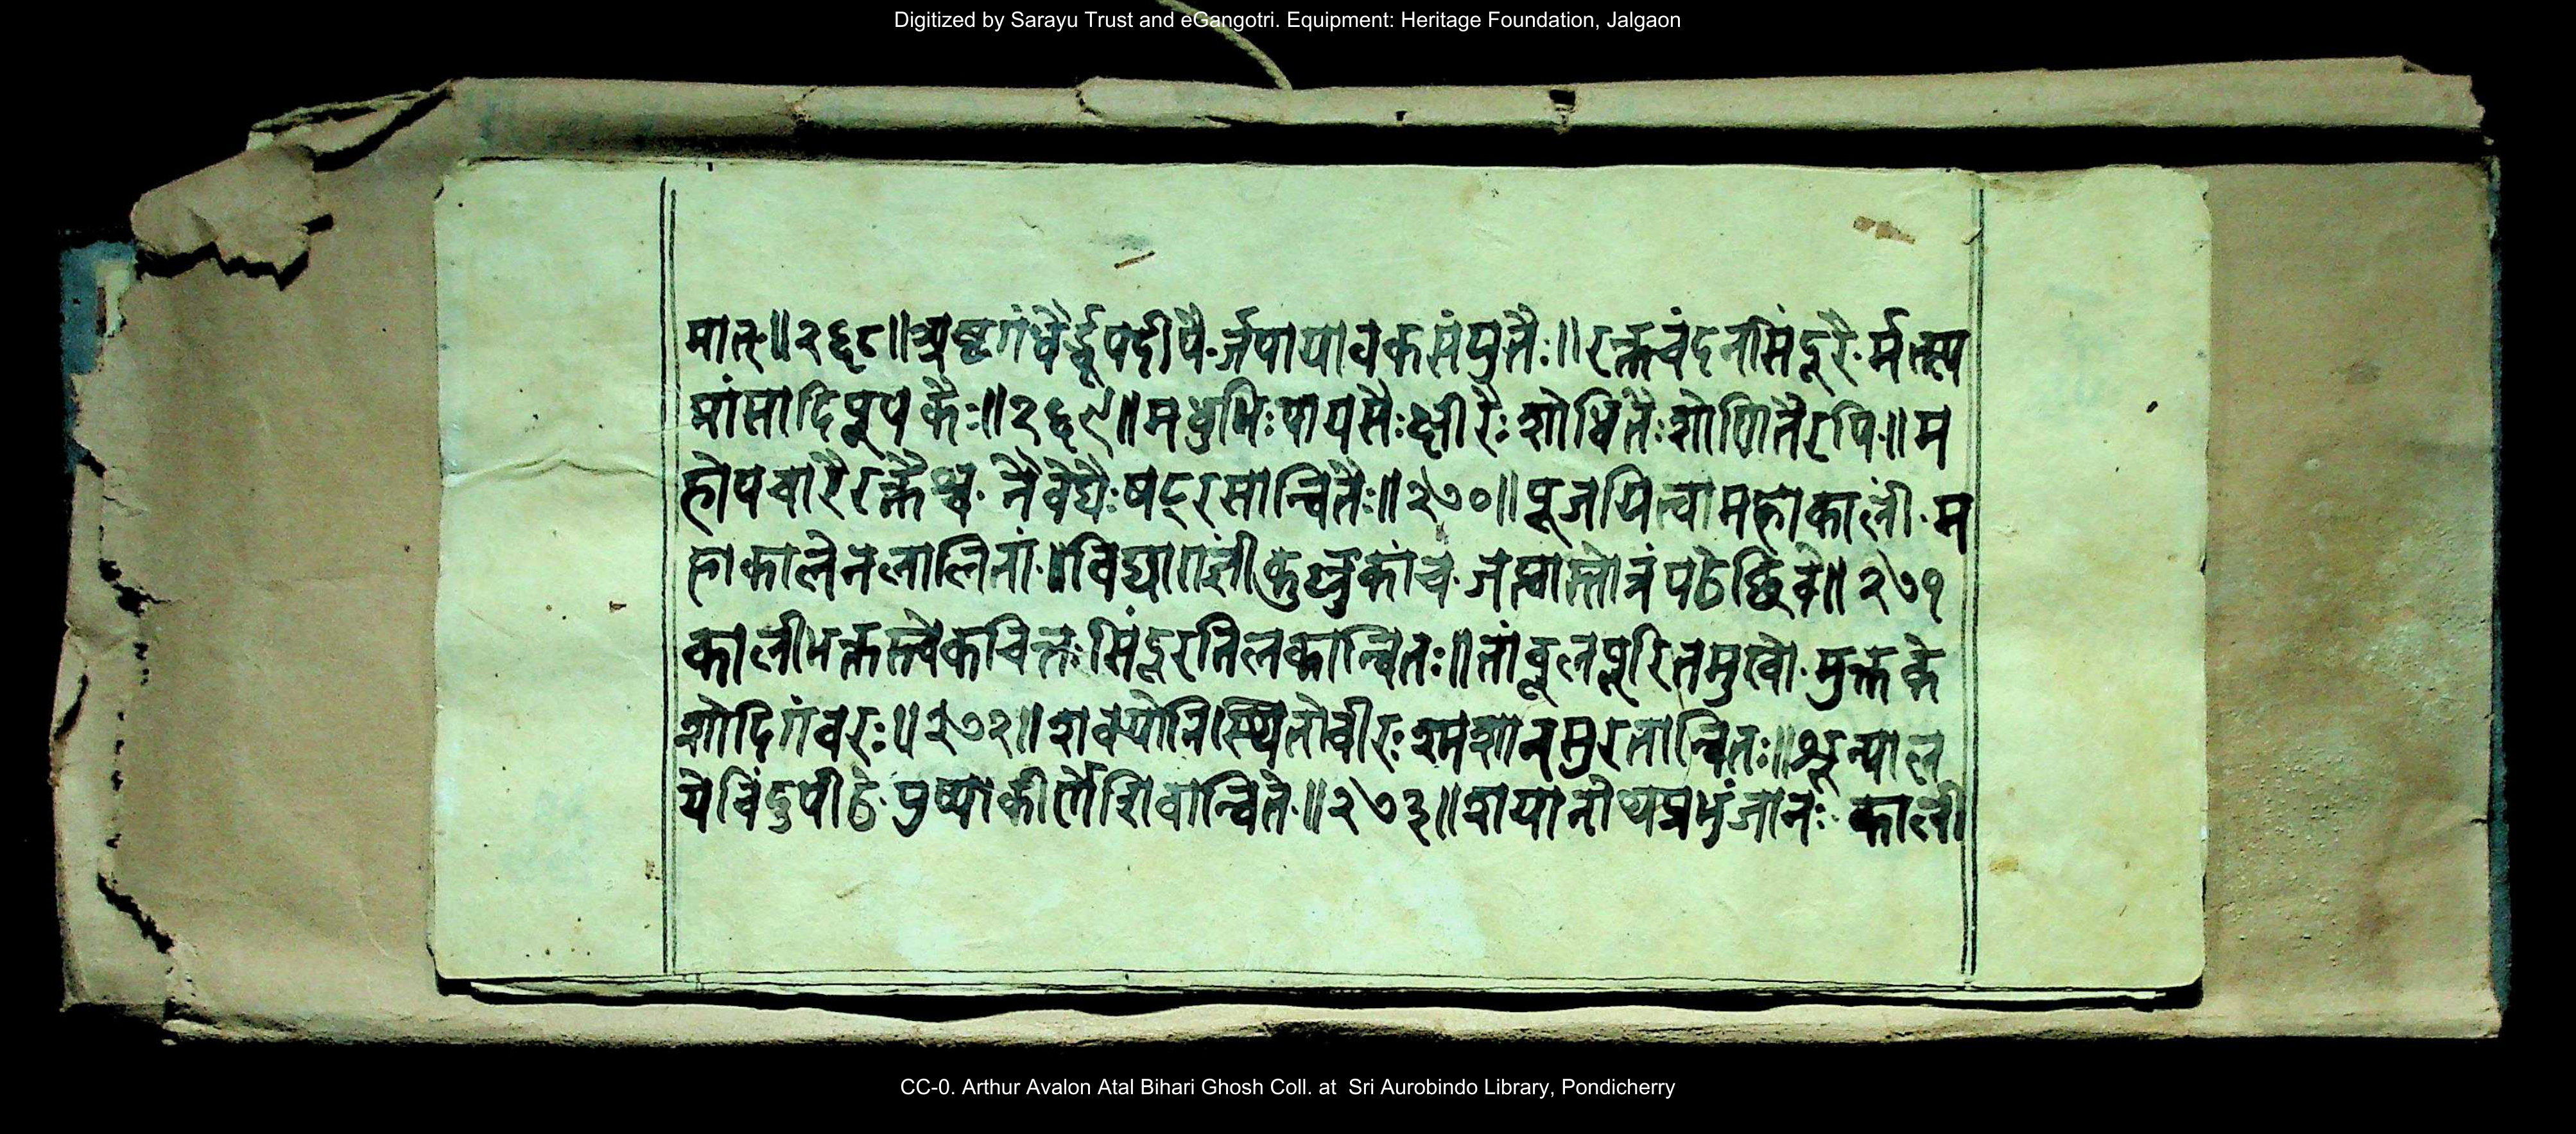 Digitized by Sarayu Trust and eGangotri. Equipment: Heritage Foundation, Jalgaon
मात्॥२६८॥अष्टगंधैर्द्धूपदीपै-र्जपायावकसंयुतैः॥रक्तचंदनसिंदूरै-र्मत्स्य
मांसादिपूपकैः॥२६९॥मधुभिःपायसैःक्षीरैः शोधितैःशोणितैरपि॥म
होपचारैरक्तैश्च नैवेद्यैःषट्रसान्वितैः॥२७०॥पूजयित्वामहाकालीं म
हाकालेनलालितां॥विद्याराज्ञीं कुल्लुकांच जप्त्वास्तोत्रंपठेच्छिवे॥२७१
कालीभक्तस्त्वेकचित्तः सिंदूरतिलकान्वितः॥तांबूलपूरितमुखो मुक्तके
शोदिगंबरः॥२७२॥शवयोनिस्थितोवीरः श्मशानसुरतान्वितः॥शून्याल
येबिंदुपीठे पुष्पाकीर्णेशिवान्विते॥२७३॥शयानोथप्रभुंजानः काली
CC-0. Arthur Avalon Atal Bihari Ghosh Coll. at Sri Aurobindo Library, Pondicherry